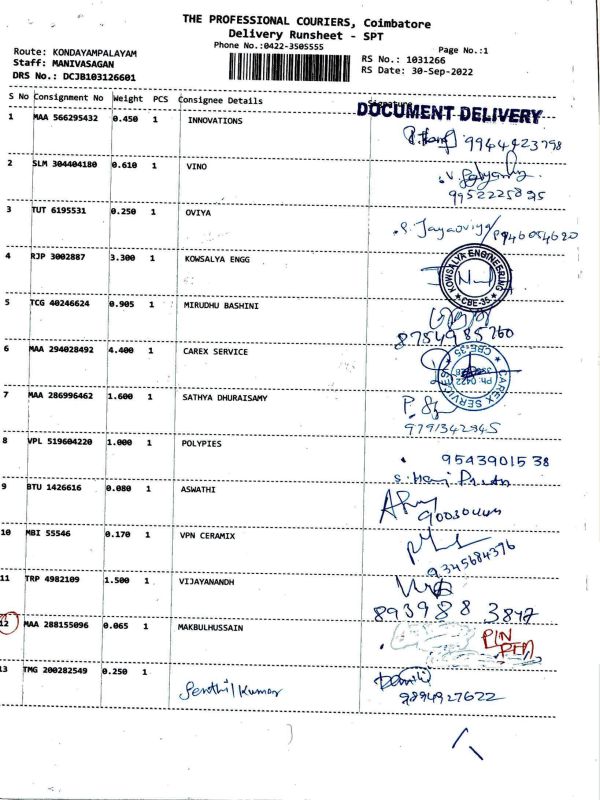 THE PROFESSIONAL COURIERS, Coimbatore
Delivery Runsheet - SPT
Phone No.:0422-3505555
Page No.:1
Route: KONDAYAMPALAYAM
Staff: MANIVASAGAN
DRS No.: DCJB103126601
RS No.: 1031266
RS Date: 30-Sep-2022
S No Consignment No Weight PCS Consignee Details Signature
DOCUMENT DELIVERY
1 MAA 566295432 0.450 1 INNOVATIONS
9944423798
2 SLM 304404180 0.610 1 VINO
9952225895
3 TUT 6195531 0.250 1 OVIYA
S. Jayaoviya
4 RJP 3002887 3.300 1 KOWSALYA ENGG
KOWSALYA ENGINEERING
* CBE-35 *
5 TCG 40246624 0.905 1 MIRUDHU BASHINI
8754985760
6 MAA 294028492 4.400 1 CAREX SERVICE
CAREX SERVICES
CBE-35
7 MAA 286996462 1.600 1 SATHYA DHURAISAMY
9791342345
8 VPL 519604220 1.000 1 POLYPIES
9543901538
9 BTU 1426616 0.080 1 ASWATHI
10 MBI 55546 0.170 1 VPN CERAMIX
9345684376
11 TRP 4982109 1.500 1 VIJAYANANDH
893988 3847
12 MAA 288155096 0.065 1 MAKBULHUSSAIN
13 TMG 200282549 0.250 1 Senthil Kumar
9894927622